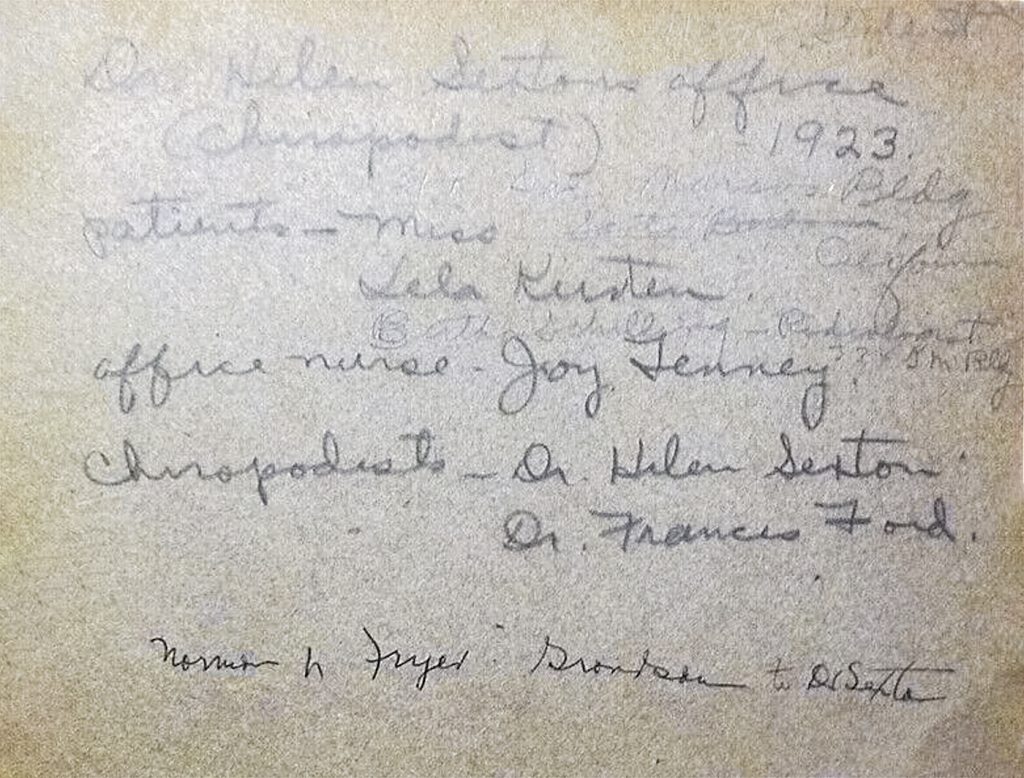 Dr. Helen Sexton's office
(Chiropodist) 1923.
San Marcos Bldg
patients - Miss
Santa Barbara,
California
Lela Kirsten.
Pedenrist
office nurse - Joy Tenney.
Bldg
Chiropodists - Dr. Helen Sexton.
Dr. Frances Ford.
Norman h Fryer. Grandson to Dr Sexton